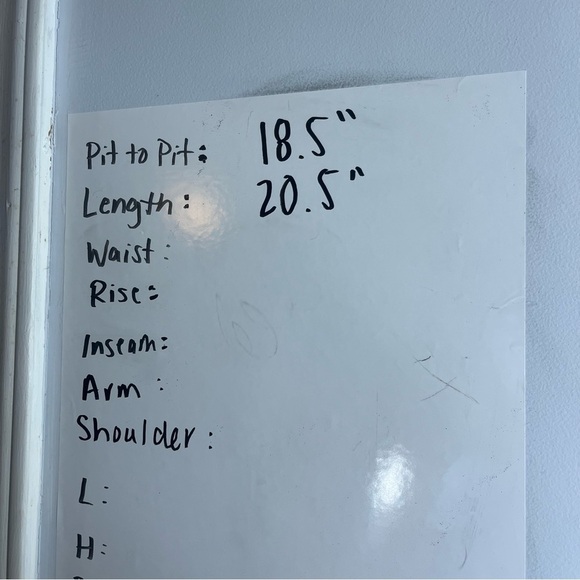 Pit to Pit: 18.5"
Length: 20.5"
Waist:
Rise:
Inseam:
Arm:
Shoulder:
L:
H: